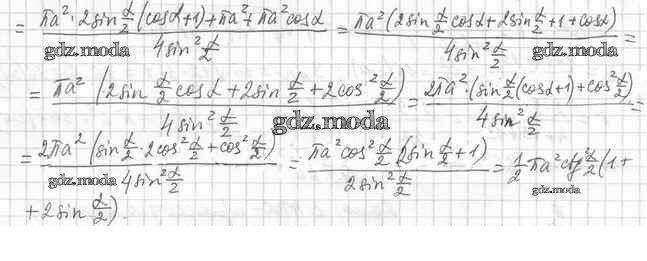 = (πa²·2sin α/2 (cosα+1)+πa²+πa²cosα)/(4sin² α/2) = (πa²(2sin α/2 cosα+2sin α/2+1+cosα))/(4sin² α/2) =
gdz.moda gdz.moda
= (πa² (2sin α/2 cosα+2sin α/2+2cos² α/2))/(4sin² α/2) = (2πa²·(sin α/2(cosα+1)+cos² α/2))/(4sin² α/2) =
gdz.moda
= (2πa² (sin α/2·2cos² α/2+cos² α/2))/(4sin² α/2) = (πa²cos² α/2 (2sin α/2+1))/(2sin² α/2) = 1/2 πa²ctg² α/2 (1+
gdz.moda gdz.moda
+2sin α/2)